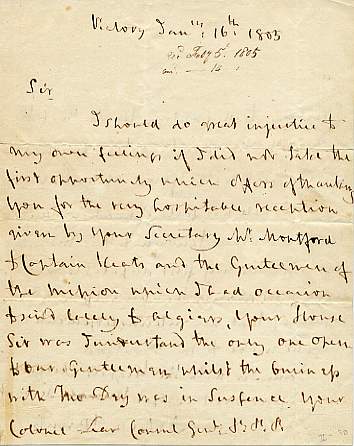 Victory Jany: 16th: 1805
Feby 5: 1805
Sir
I should do great injustice to
my own feelings if I did not take the
first opportunity which offers of thanking
you for the very hospitable reception
given by your Secretary Mr. Montford
to Captain Keats and the Gentlemen of
the mission which I had occasion
to send lately to Algiers, Your House
Sir was I understand the only one open
to our Gentlemen whilst the business
with The Dey was in Suspence Your
Colonel Lear Consul Genl: